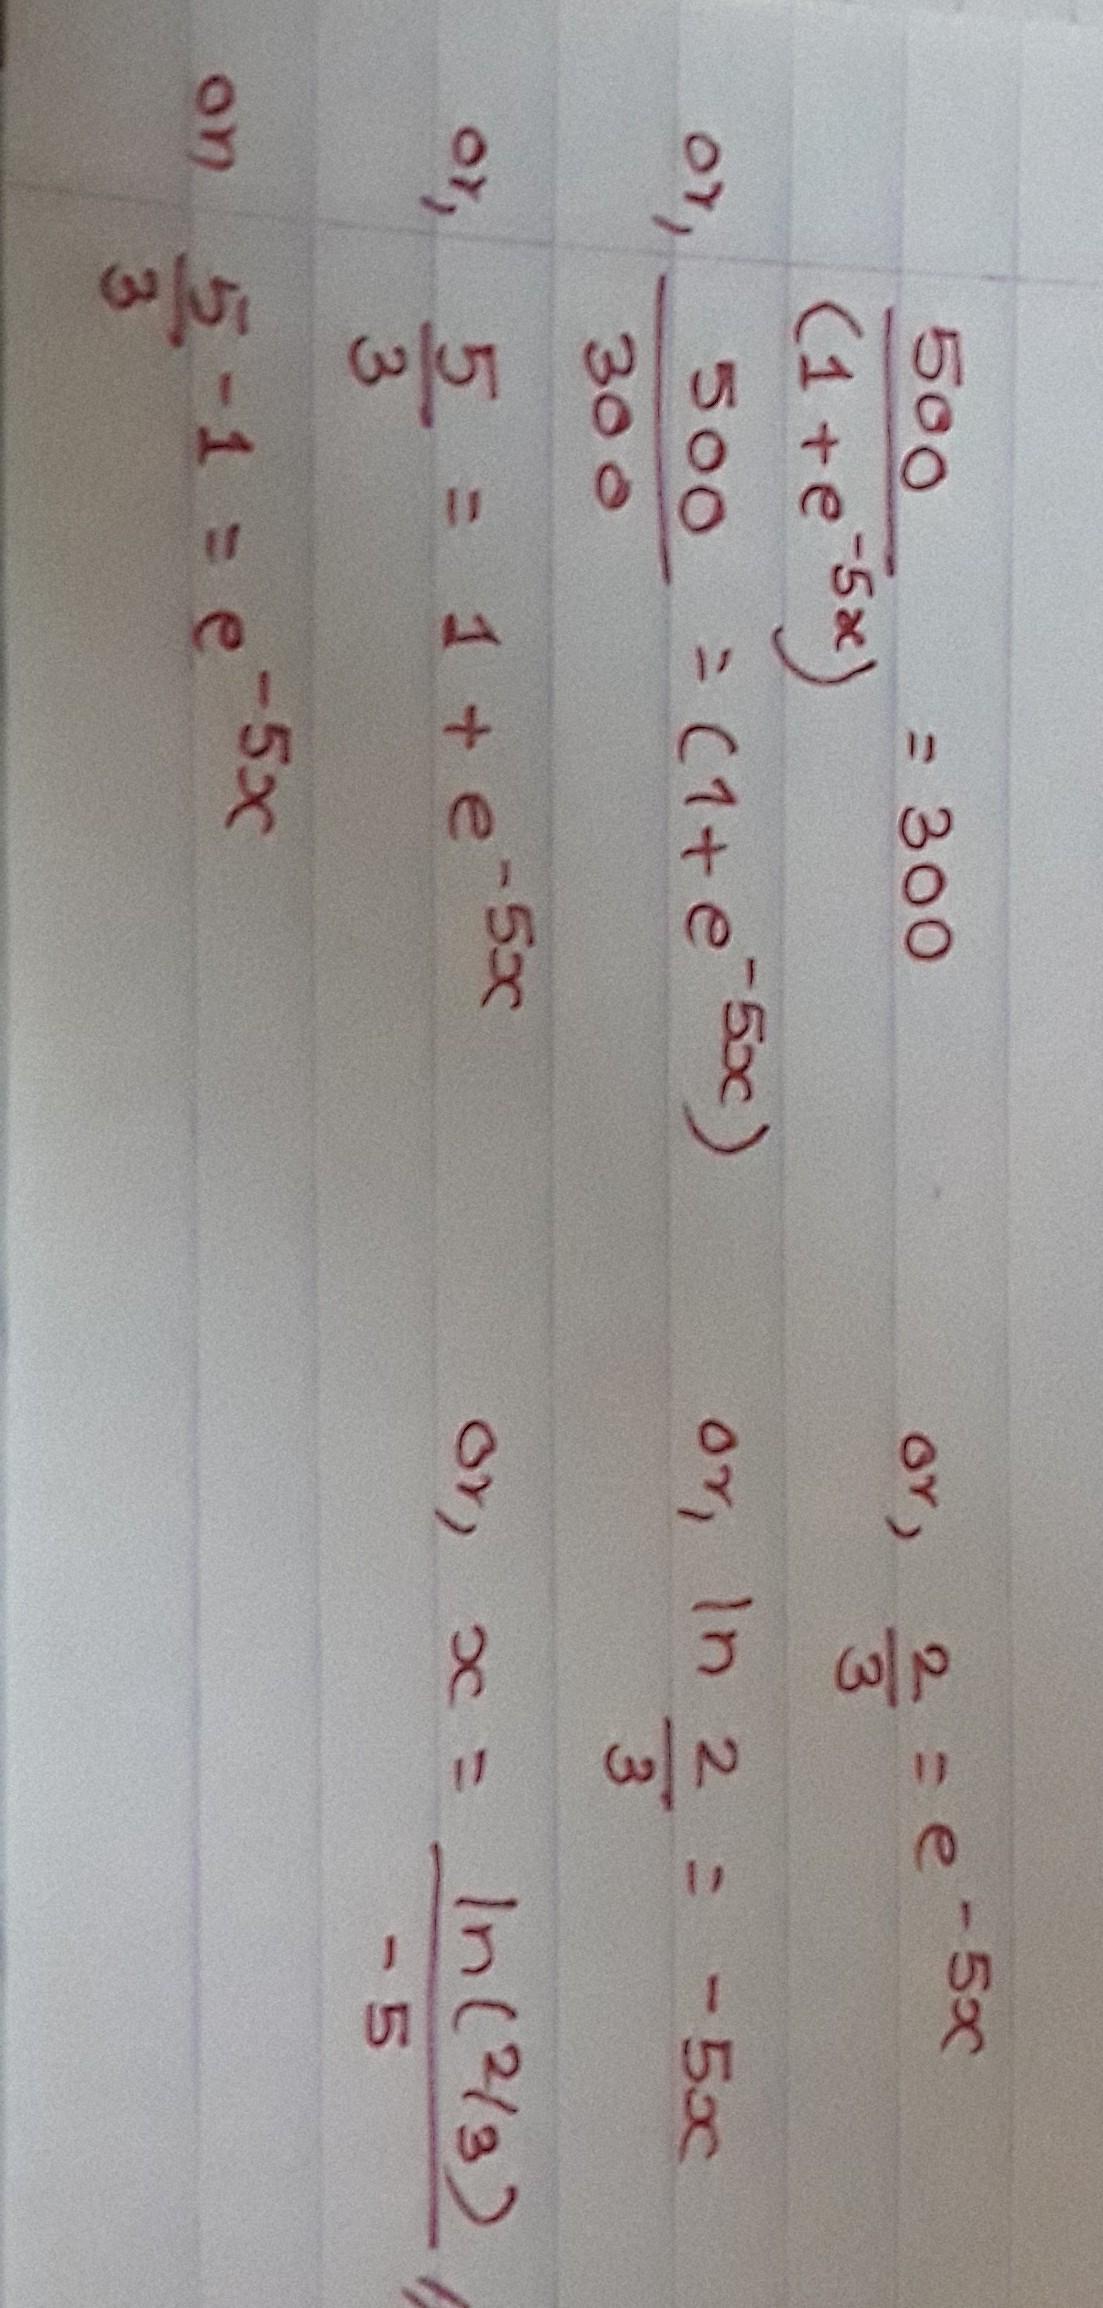 500/(1+e^-5x) = 300
or, 500/300 = (1+e^-5x)
or, 5/3 = 1+e^-5x
or, 5/3 - 1 = e^-5x
or, 2/3 = e^-5x
or, ln 2/3 = -5x
or, x = ln(2/3)/-5 //